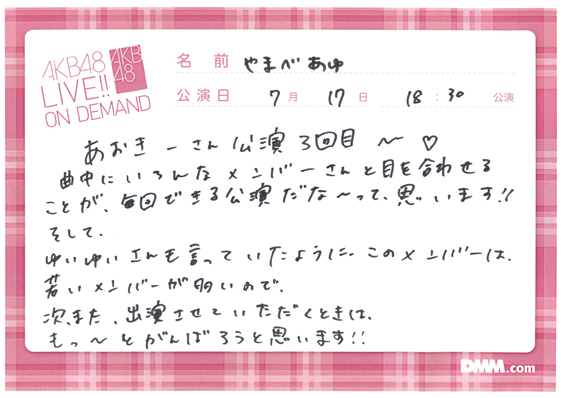 AKB48
LIVE!!
ON DEMAND
AKB
48
名前 やまべあゆ
公演日 7月 17日 18:30 公演
あおきーさん公演3回目 〜 ♡
曲中にいろんなメンバーさんと目を合わせる
ことが、毎回できる公演だな〜って、思います!!
そして、
ゆいゆいさんも言っていたように、このメンバーは、
若いメンバーが多いので、
次、また、出演させていただくときは、
もっ〜とがんばろうと思います!!
DMM.com